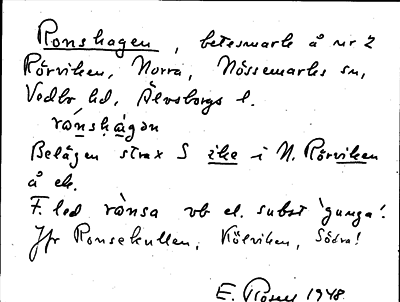 Ronshagen, betesmark å nr 2
Rörviken, Norra, Nössemarks sn,
Vedbo hd, Älvsborgs l.
rånshågan
Belägen strax S ike i N. Rörviken
å ek.
F. led rånsa vb el. subst 'gunga'.
Jfr Ronsekullen, Kölviken, Södra!
E. Rosell 1948.